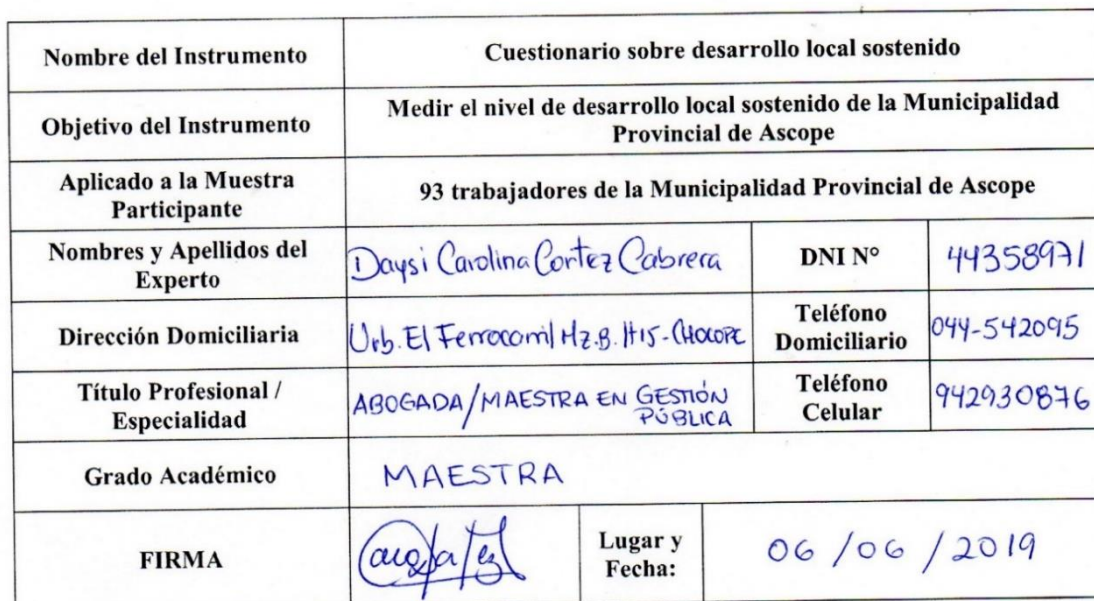 Nombre del Instrumento
Cuestionario sobre desarrollo local sostenido
Objetivo del Instrumento
Medir el nivel de desarrollo local sostenido de la Municipalidad
Provincial de Ascope
Aplicado a la Muestra
Participante
93 trabajadores de la Municipalidad Provincial de Ascope
Nombres y Apellidos del
Experto
Daysi Carolina Cortez Cabrera
DNI N°
44358971
Dirección Domiciliaria
Urb. El Ferrocarril Mz.B. lt15-CHOCOPE
Teléfono
Domiciliario
044-542095
Título Profesional /
Especialidad
ABOGADA/MAESTRA EN GESTIÓN
PÚBLICA
Teléfono
Celular
942930876
Grado Académico
MAESTRA
FIRMA
Lugar y
Fecha:
06/06/2019